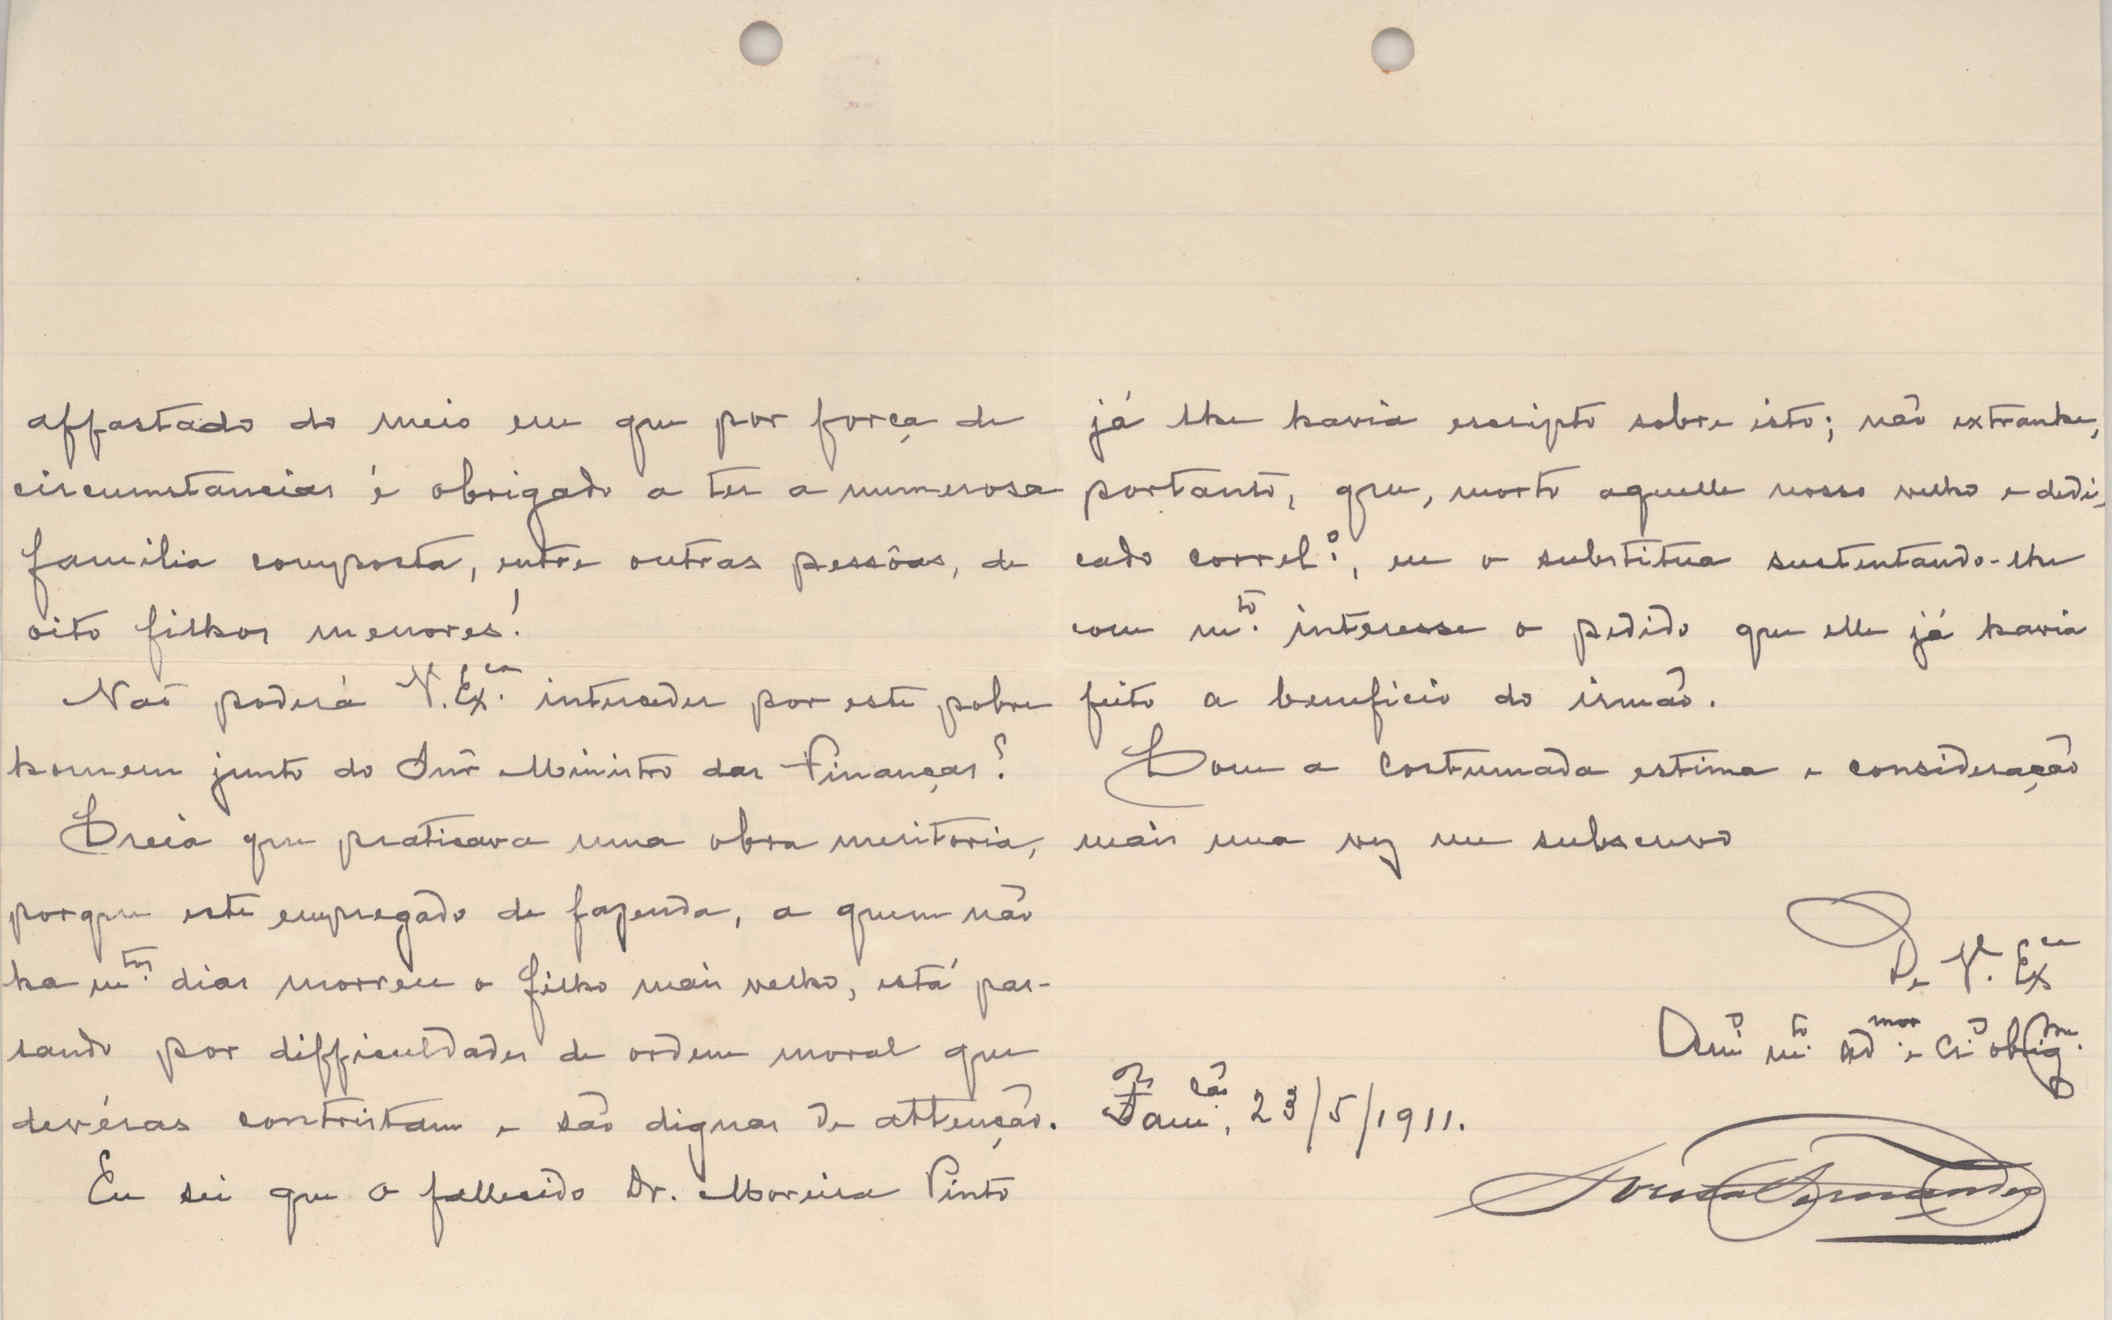 affastado do meio em que por força de
circumstancias é obrigado a ter a numerosa
familia composta, entre outras pessôas, de
oito filhos menores!
Não poderá V. Ex.ca interceder por este pobre
homem junto do Snr Ministro das Finanças?
Creia que praticava uma obra meritoria,
porque este empregado de fazenda, a quem não
ha m.tos dias morreu o filho mais velho, está pas-
sando por difficuldades de ordem moral que
devéras contristam e são dignas de attenção.
Eu sei que o fallecido Dr. Moreira Pinto
já lhe havia escripto sobre isto; não extranhe,
portanto, que, morto aquelle nosso velho e dedi-
cado correl.o, eu o substitua sustentando-lhe
com m.to interesse o pedido que elle já havia
feito a beneficio do irmão.
Com a costumada estima e consideração
mais uma vez me subscrevo
De V. Ex.ca
Am.o m.to ad.mor e cr.o obrig.mo
Fam.cão, 23/5/1911.
Sousa Fernandes